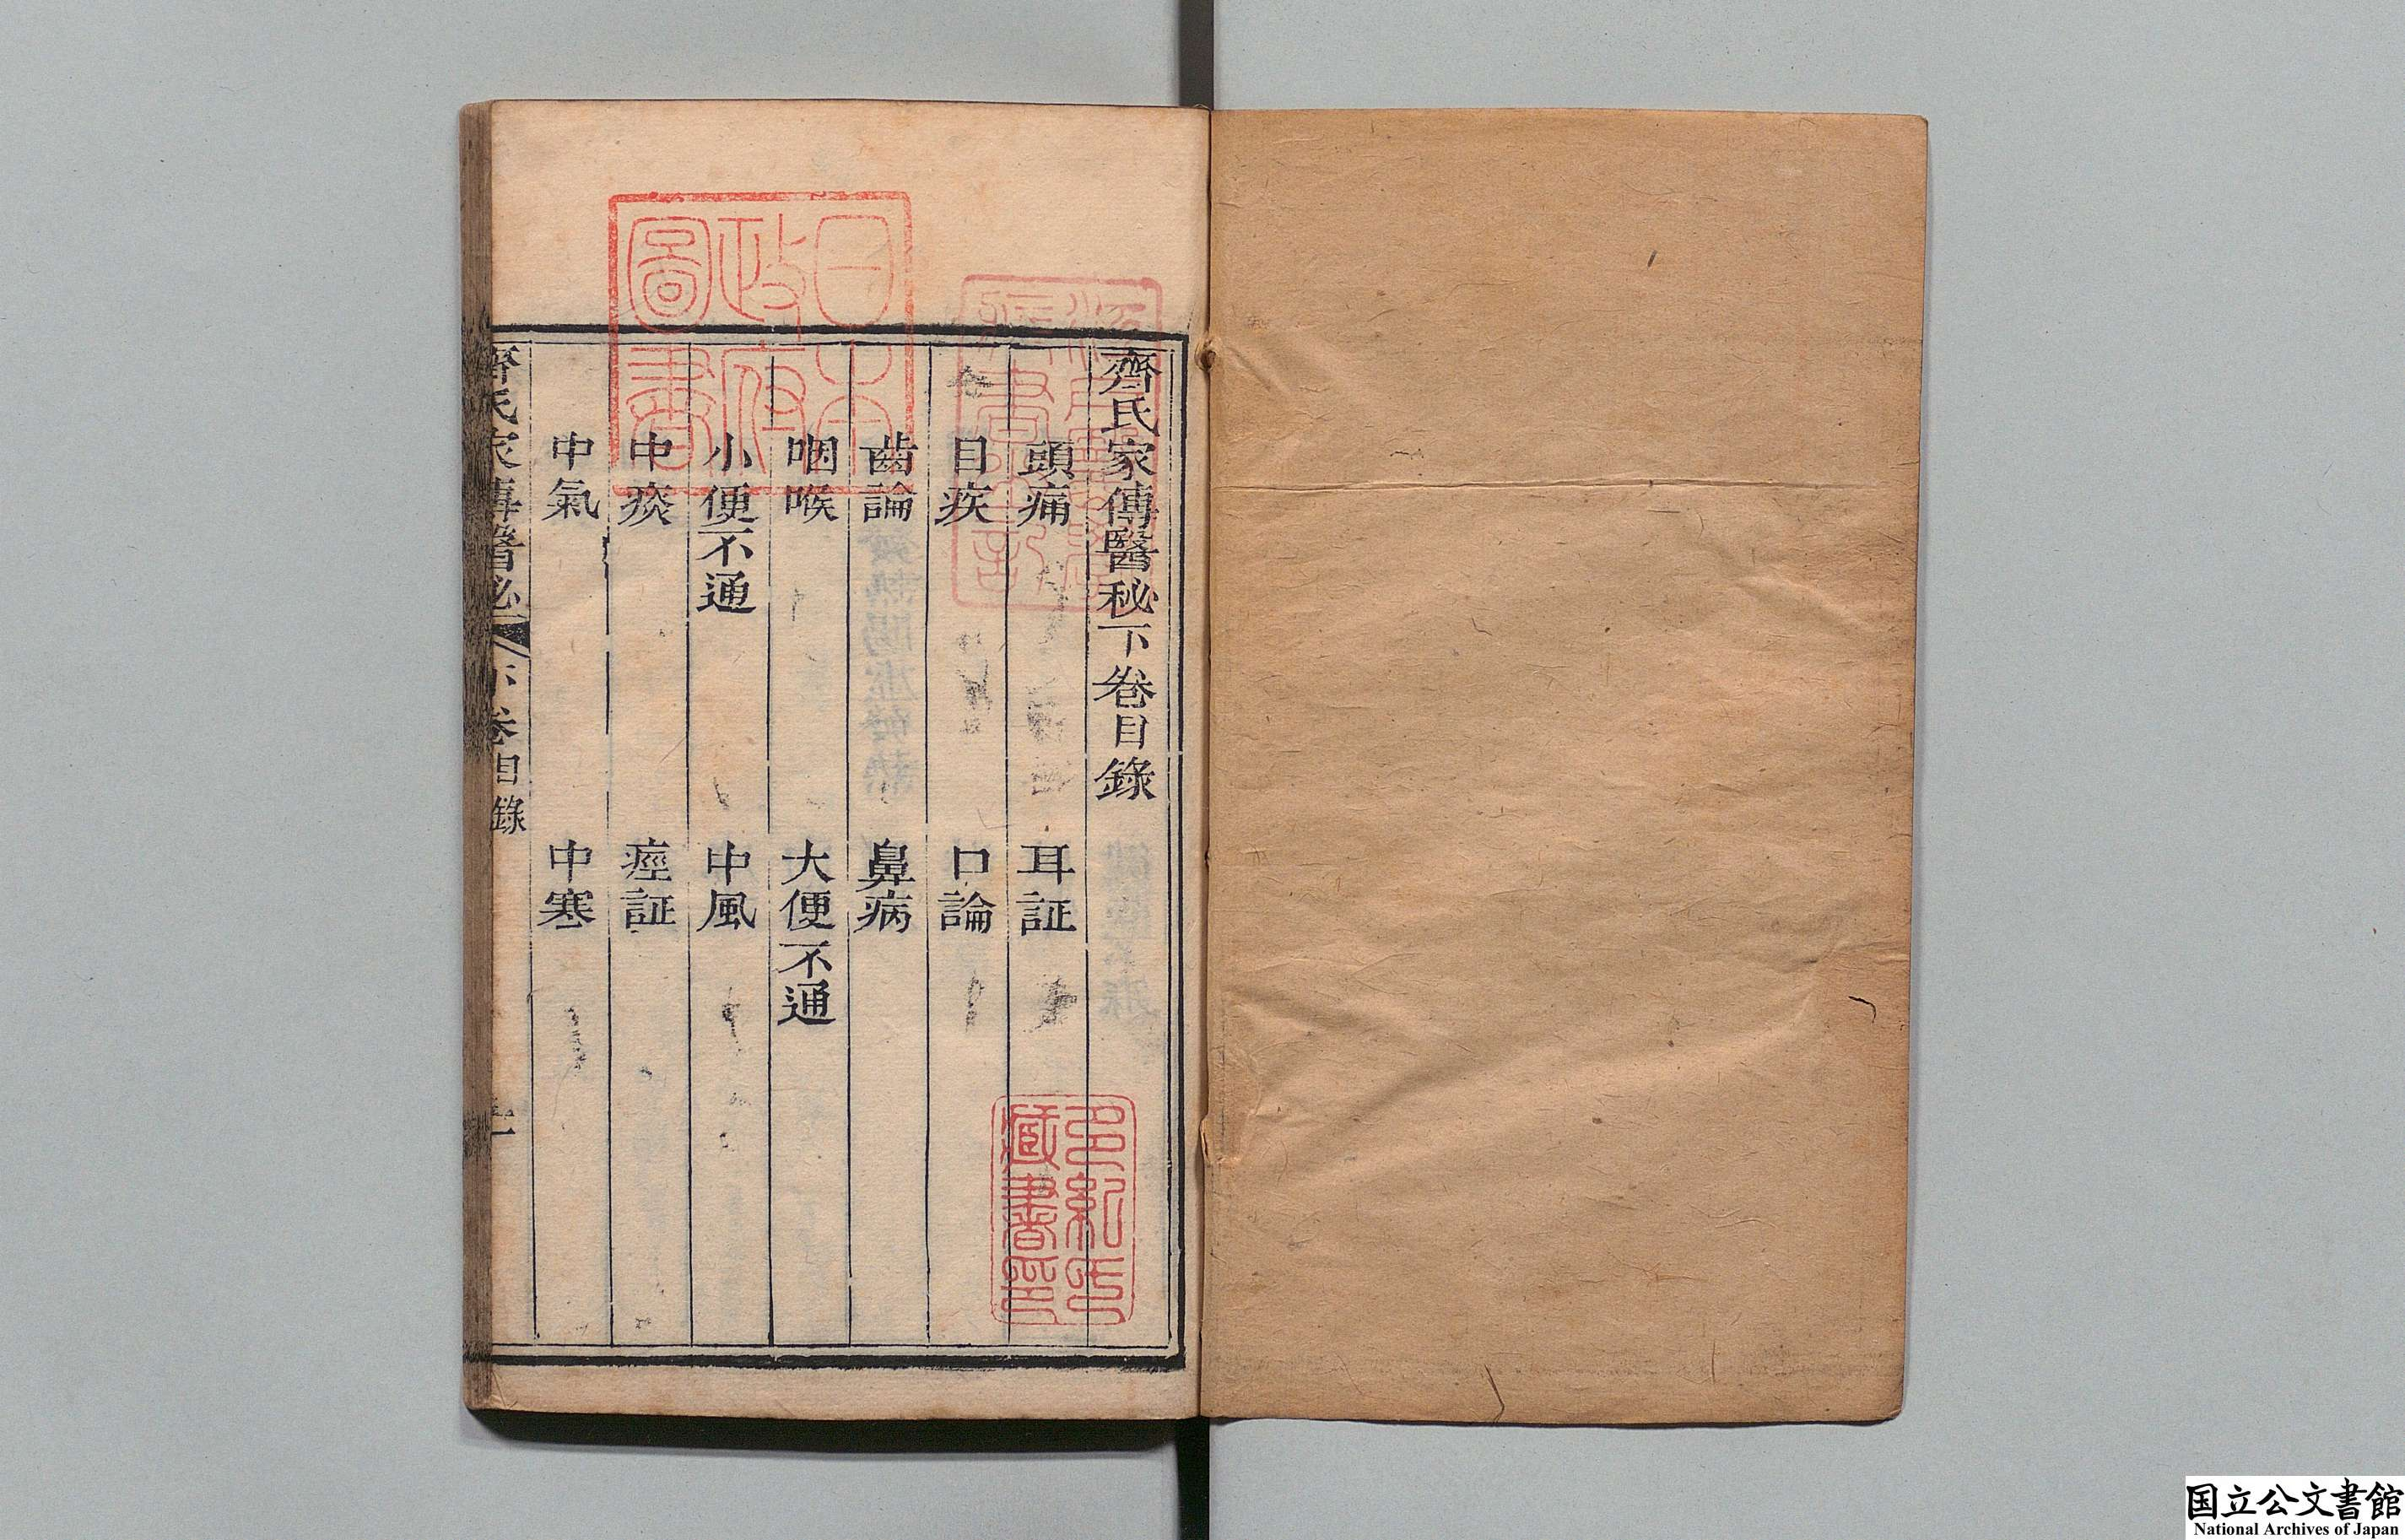 齊氏家傳醫秘下卷目錄
頭痛　耳証
目疾　口論
齒論　鼻病
咽喉　大便不通
小便不通　中風
中痰　痙証
中氣　中寒
齊氏家傳醫秘　下卷目錄　一
日本
政府
圖書
多紀氏
藏書印
国立公文書館
National Archives of Japan